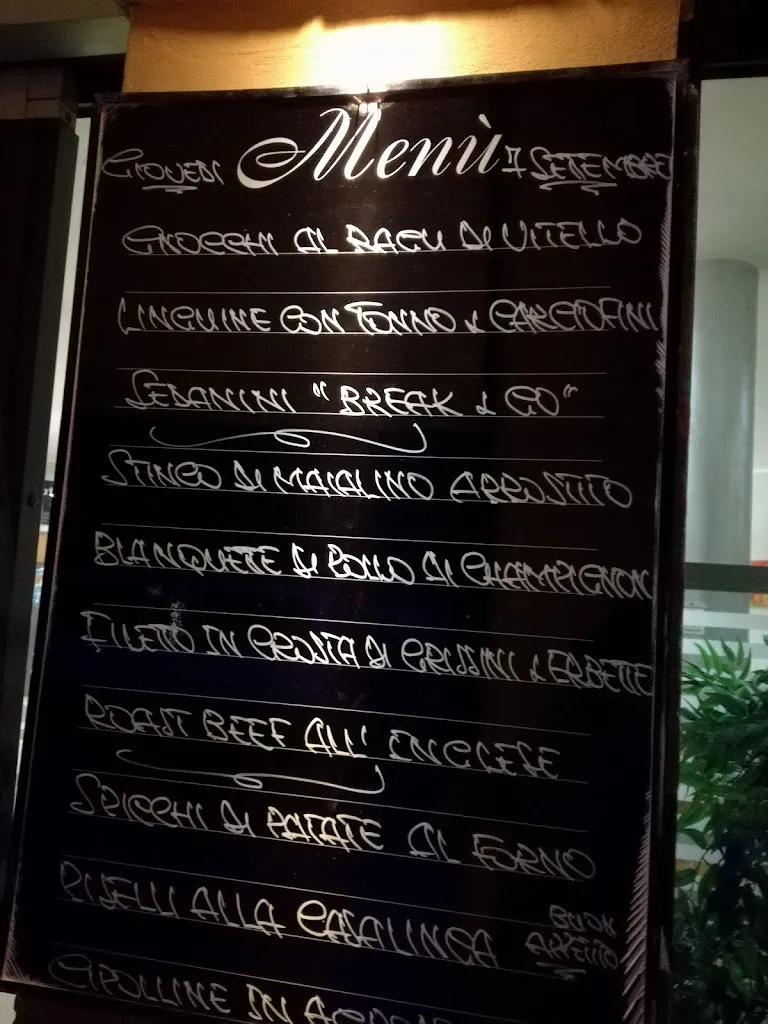 GIOVEDI Menù 7 SETTEMBRE
GNOCCHI AL RAGU DI VITELLO
LINGUINE CON TONNO & CARCIOFINI
SEDANINI "BREAK & GO"
STINCO DI MAIALINO ARROSTITO
BLANQUETTE DI POLLO AI CHAMPIGNON
FILETTO IN CROSTA DI GRISSINI & ERBETTE
ROAST BEEF ALL' INGLESE
SPICCHI DI PATATE AL FORNO
PISELLI ALLA CASALINGA
BUON
APPETITO
CIPOLLINE IN AGRO